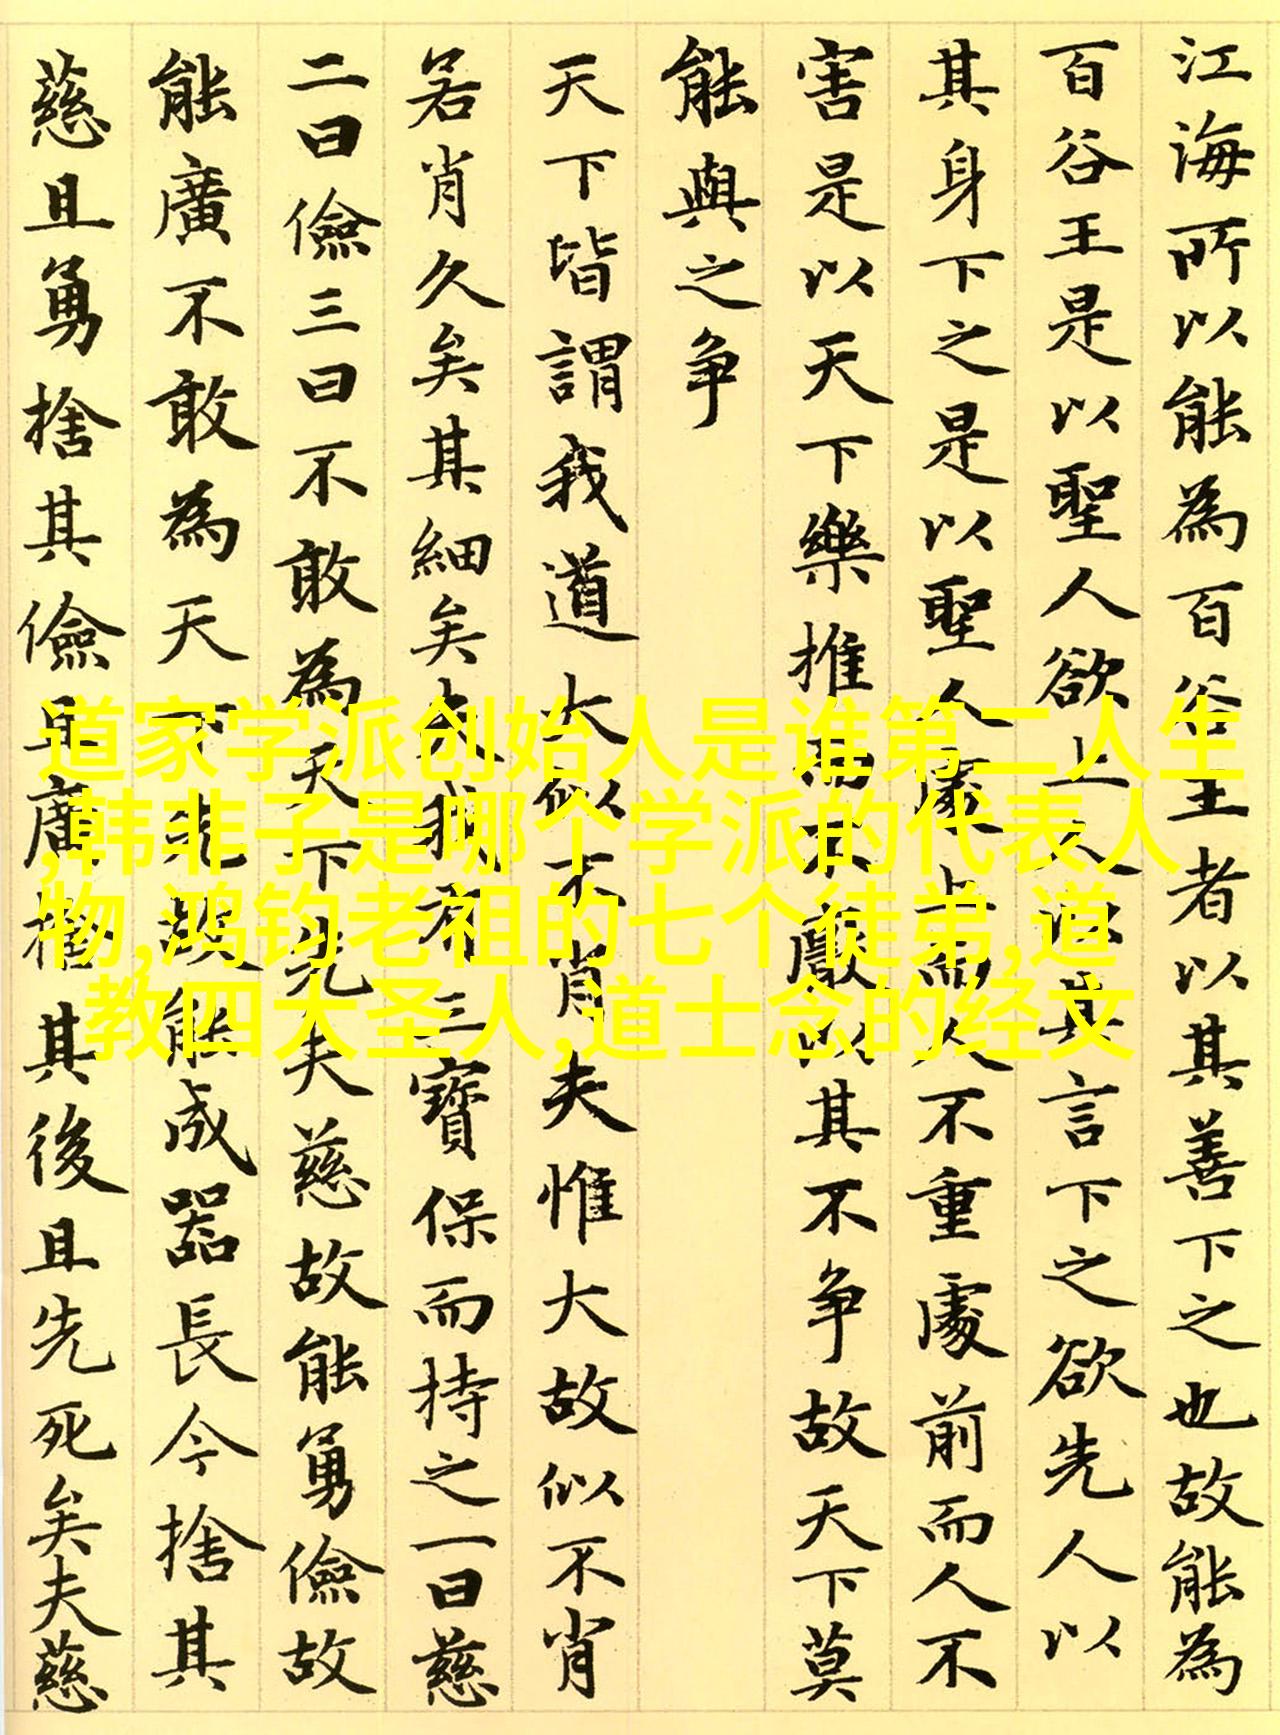 江海所以能為百谷王者以其善下之也故能為
百谷王是以聖人欲上人以其言下之欲先人以
其身下之是以聖人處上而人不重處前而人不
害是以天下樂推而不厭以其不争故天下莫
能與之争
天下皆謂我道大似不肖夫惟大故似不肖
若肖久矣其細矣夫我有三寶保而持之一曰慈
二曰儉三曰不敢為天下先夫慈故能勇儉故
能廣不敢為天下先故能成器長今捨其
慈且勇捨其儉且廣捨其後且先死矣夫慈
道家学派创始人是谁第二人生
,韩非子是哪个学派的代表人
物,鸿钧老祖的七个徒弟,道
教四大圣人,道士念的经文